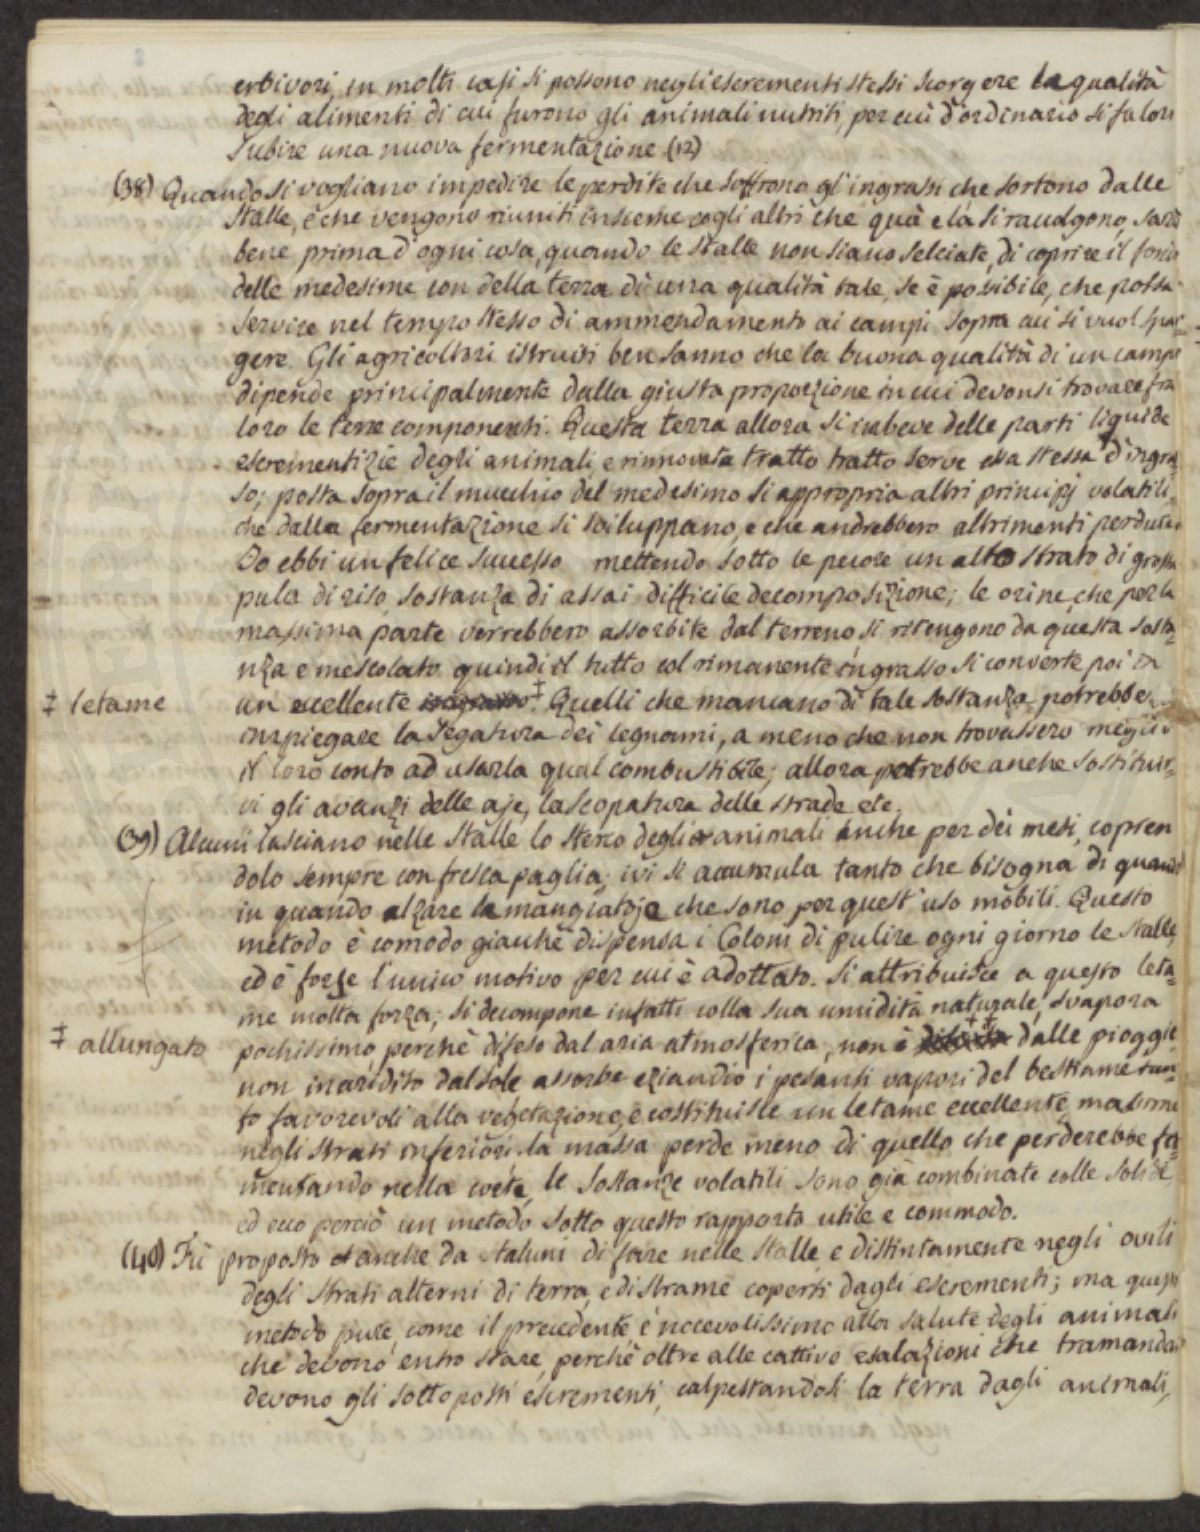 erbivori, in molti casi si possono negli escrementi stessi scorgere la qualità
degli alimenti di cui furono gli animali nutriti, per cui d'ordinario si fa loro
subire una nuova fermentazione (12)
(38) Quando si vogliano impedire le perdite che soffrono gl'ingrassi che sortono dalle
stalle, e che vengono riuniti insieme cogli altri che quà e là si raccolgono, sarà
bene prima d'ogni cosa, quando le stalle non siano selciate, di coprire il fondo
delle medesime con della terra di una qualità tale, se è possibile, che possa
servire nel tempo stesso di ammendamento ai campi sopra cui si vuol spar=
gere. Gli agricoltori istruiti ben sanno che la buona qualità di un campo
dipende principalmente dalla giusta proporzione in cui devonsi trovare fra
loro le terre componenti. Questa terra allora si imbeve delle parti liquide
escrementizie degli animali, e rinnovata tratto tratto serve essa stessa d'ingras
so; posta sopra il mucchio del medesimo si appropria altri principj volatili,
che dalla fermentazione si sviluppano, e che andrebbero altrimenti perduti.
Io ebbi un felice successo mettendo sotto le pecore un alto strato di grossa
pula di riso, sostanza di assai difficile decomposizione; le orine, che per la
massima parte verrebbero assorbite dal terreno, si ritengono da questa sosta=
nza e mescolato quindi il tutto col rimanente ingrasso si converte poi in
‡ letame
un eccellente ingrasso ‡. Quelli che mancano di tale sostanza potrebbe
impiegare la segatura dei legnami, a meno che non trovassero meglio
il loro conto ad usarla qual combustibile; allora potrebbe anche sostituir=
vi gli avanzi delle aje, la scopatura delle strade etc.
(39) Alcuni lasciano nelle stalle lo sterco degli animali anche per dei mesi, copren
dolo sempre con fresca paglia; ivi si accumula tanto che bisogna di quando
in quando alzare le mangiatoje che sono per quest'uso mobili. Questo
metodo è comodo giacchè dispensa i Coloni di pulire ogni giorno le stalle,
ed è forse l'unico motivo per cui è adottato. Si attribuisce a questo leta=
me molta forza; si decompone infatti colla sua umidità naturale, svapora
‡ allungato
pochissimo, perchè difeso dal aria atmosferica, non è ‡ dalle pioggie,
non inaridito dal sole assorbe eziandio i pesanti vapori del bestiame tan=
to favorevoli alla vegetazione, e costituisce un letame eccellente, ma
negli strati inferiori. la massa perde meno di quello che perderebbe fer=
mentando nella corte, le sostanze volatili sono già combinate colle solide,
ed ecco perciò un metodo sotto questo rapporto utile e commodo.
(40) Fù proposto anche da taluni di fare nelle stalle, e distintamente negli ovili
degli strati alterni di terra, e di strame coperti dagli escrementi; ma questo
metodo pure, come il precedente, è nocevolissimo alla salute degli animali
che devono entro stare, perchè oltre alle cattive esalazioni che tramandar
devono gli sottoposti escrementi, calpestandosi la terra dagli animali,